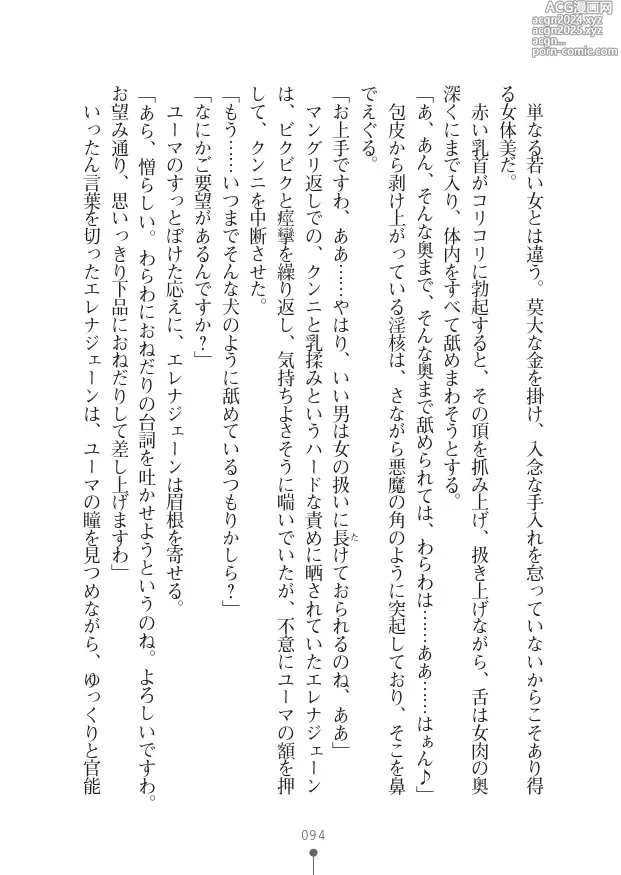 ACG漫画网
acgn2024.xyz
acgn2025.xyz
acgn....link
porn-comic.com
単なる若い女とは違う。莫大な金を掛け、入念な手入れを怠っていないからこそあり得
る女体美だ。
赤い乳首がコリコリに勃起すると、その頂を抓み上げ、扱き上げながら、舌は女肉の奥
深くにまで入り、体内をすべて舐めまわそうとする。
「あ、あん、そんな奥まで、そんな奥まで舐められては、わらわは……ああ……はぁん♪」
包皮から剥け上がっている淫核は、さながら悪魔の角のように突起しており、そこを鼻
でえぐる。
「お上手ですわ、ああ……やはり、いい男は女の扱いに長けておられるのね、ああ」
た
マングリ返しでの、クンニと乳揉みというハードな責めに晒されていたエレナジェーン
は、ビクビクと痙攣を繰り返し、気持ちよさそうに喘いでいたが、不意にユーマの額を押
して、クンニを中断させた。
「もう……いつまでそんな犬のように舐めているつもりかしら？」
「なにかご要望があるんですか？」
ユーマのすっとぼけた応えに、エレナジェーンは眉根を寄せる。
「あら、憎らしい。わらわにおねだりの台詞を吐かせようというのね。よろしいですわ。
お望み通り、思いっきり下品におねだりして差し上げますわ」
いったん言葉を切ったエレナジェーンは、ユーマの瞳を見つめながら、ゆっくりと官能
094